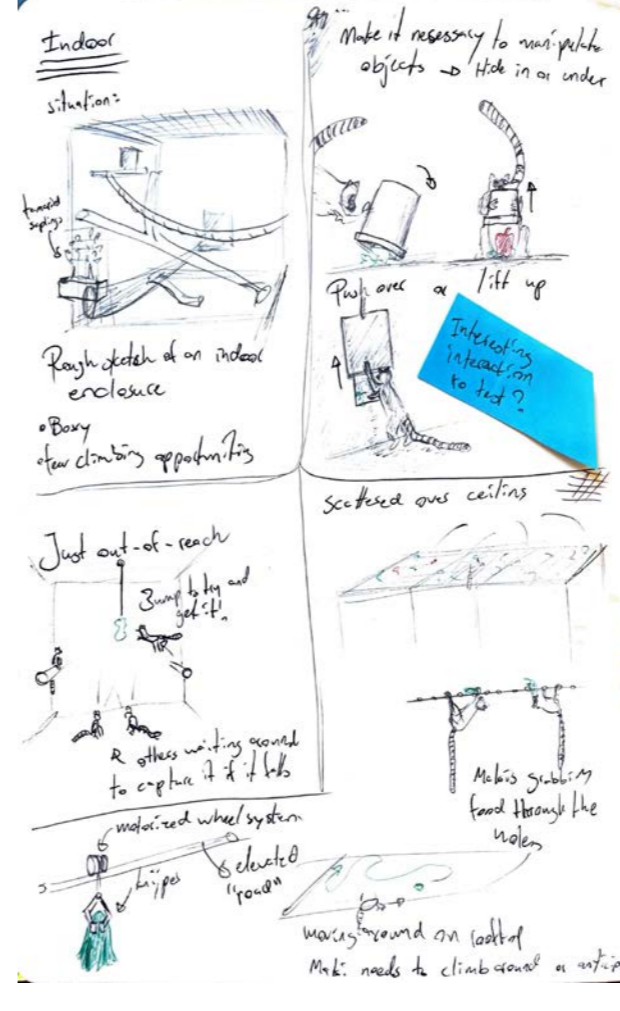 Indoor
situation:
saplings
Rough sketch of an indoor
enclosure
• Boxy
• few climbing opportunities
Make it nesessary to manipulate
objects → Hide in or under
Push over or lift up
Interesting
interaction
to test?
Just out-of-reach
Jump to try and
get it!
& others waiting around
to capture it if it falls
Scattered over ceiling
Makis grabbing
food through the
holes
motorized wheel system
elevated
"road"
moving around on rooftop
Maki needs to climb around or